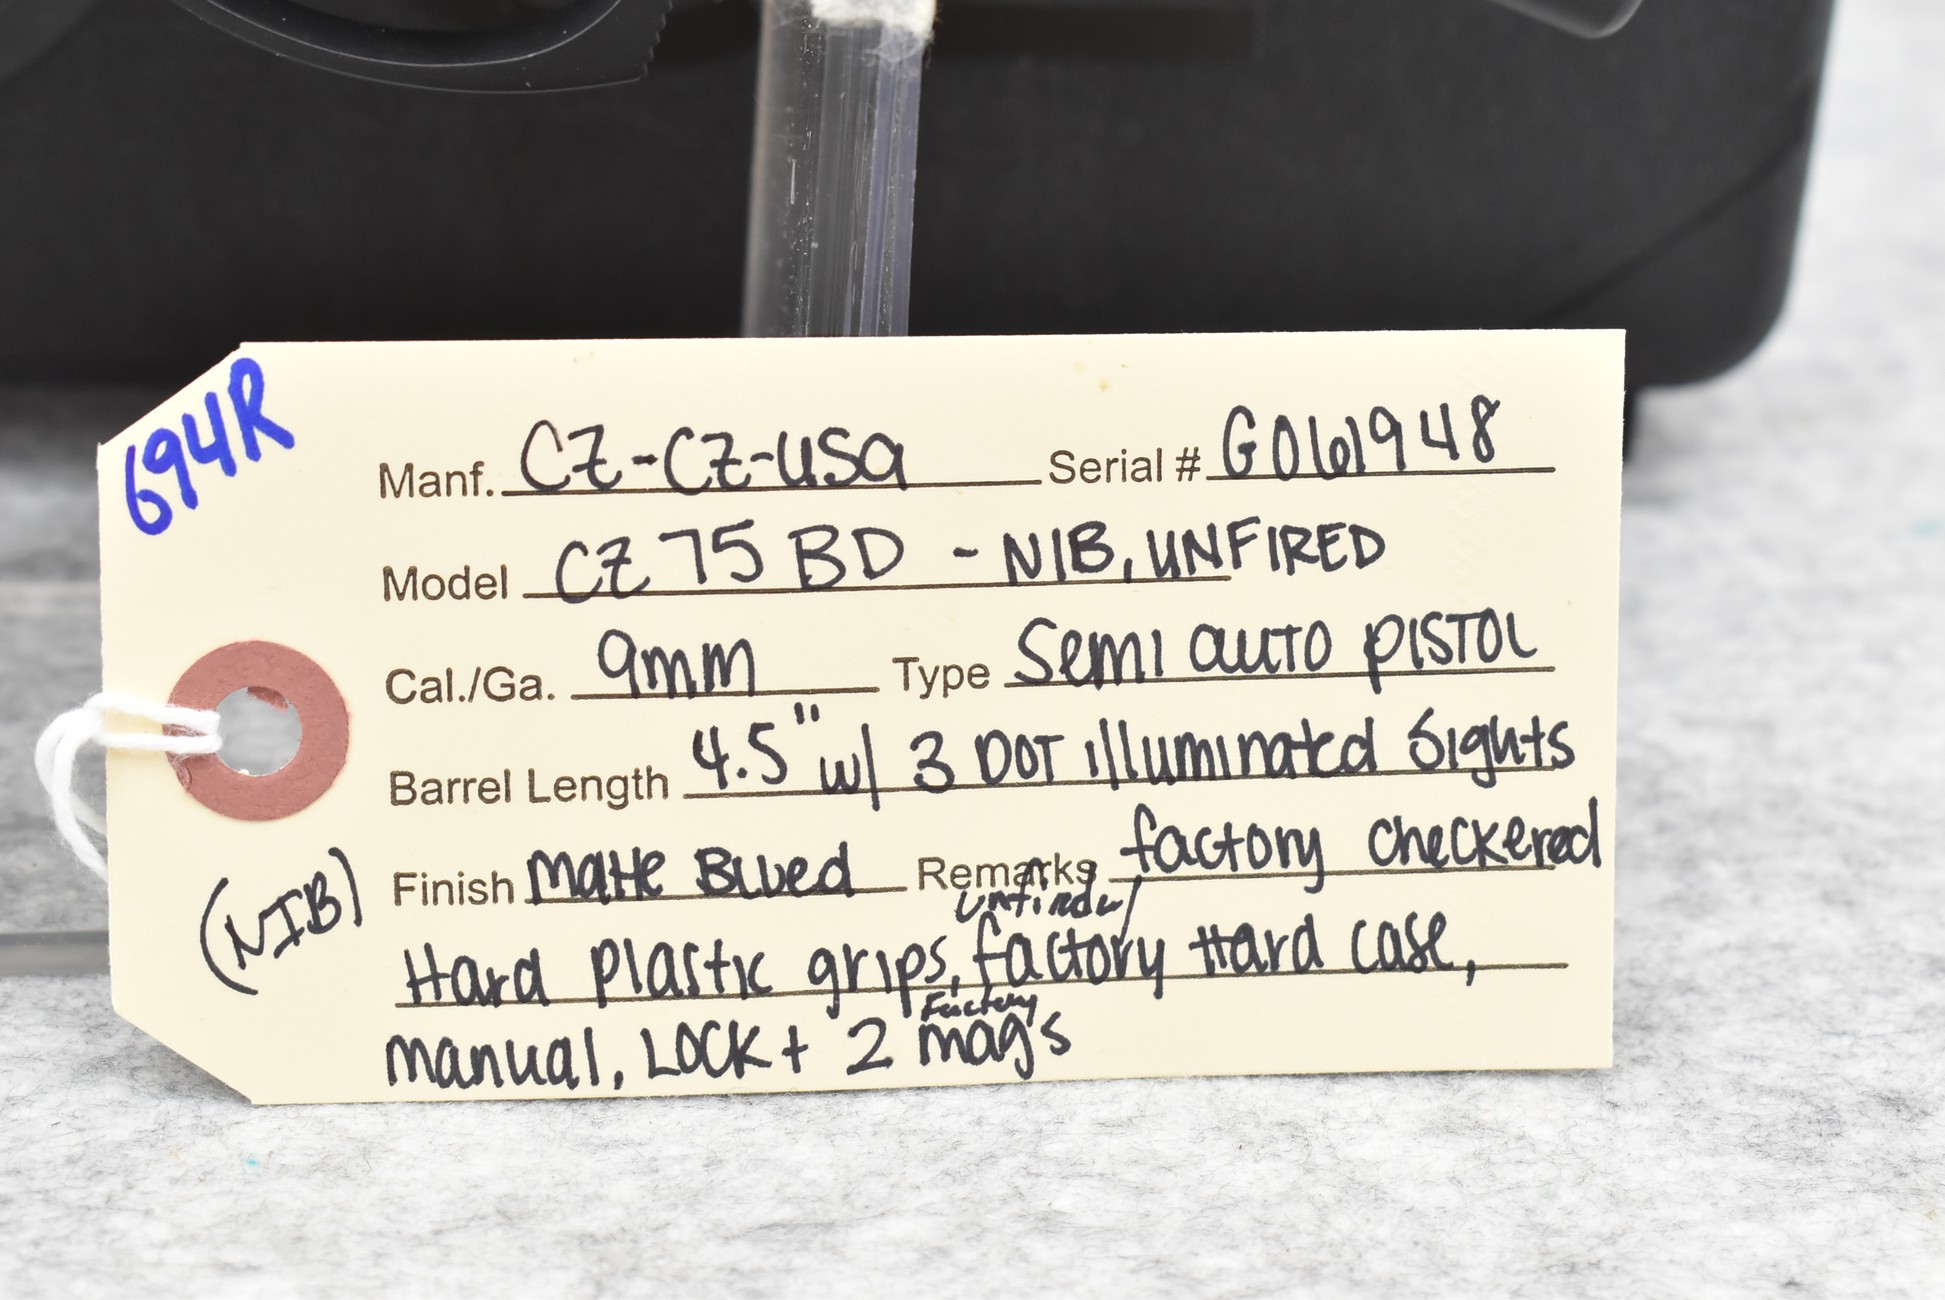 694R
Manf. CZ-CZ-USA Serial # G061948
Model CZ 75 BD - NIB, UNFIRED
Cal./Ga. 9mm Type Semi auto PISTOL
Barrel Length 4.5" w/ 3 DOT illuminated Sights
Finish Matte Blued Remarks factory checkered
unfired
Hard plastic grips, factory Hard case,
Factory
manual, LOCK + 2 mag's
(NIB)